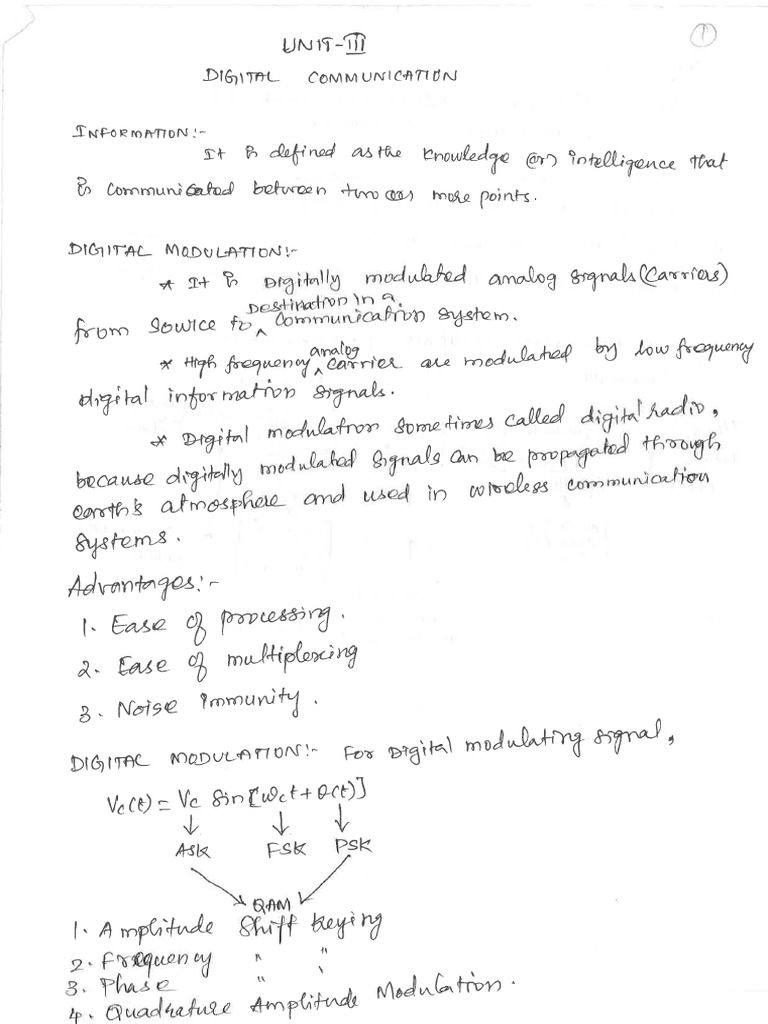 1
UNIT-III
DIGITAL COMMUNICATION
INFORMATION:-
It is defined as the knowledge (or) intelligence that
is communicated between two (or) more points.
DIGITAL MODULATION:-
* It is Digitally modulated analog signals (carriers)
from source to ^ Destination in a communication system.
* High frequency ^ analog carrier are modulated by low frequency
digital information signals.
* Digital modulation sometimes called digital radio,
because digitally modulated signals can be propagated through
earth's atmosphere and used in wireless communication
systems.
Advantages:-
1. Ease of processing.
2. Ease of multiplexing
3. Noise immunity.
DIGITAL MODULATION:- For Digital modulating signal,
Vc(t) = Vc Sin[ωct + θ(t)]
↓ ↓ ↓
ASK FSK PSK
QAM
1. Amplitude Shift keying
2. Frequency " "
3. Phase " "
4. Quadrature Amplitude Modulation.